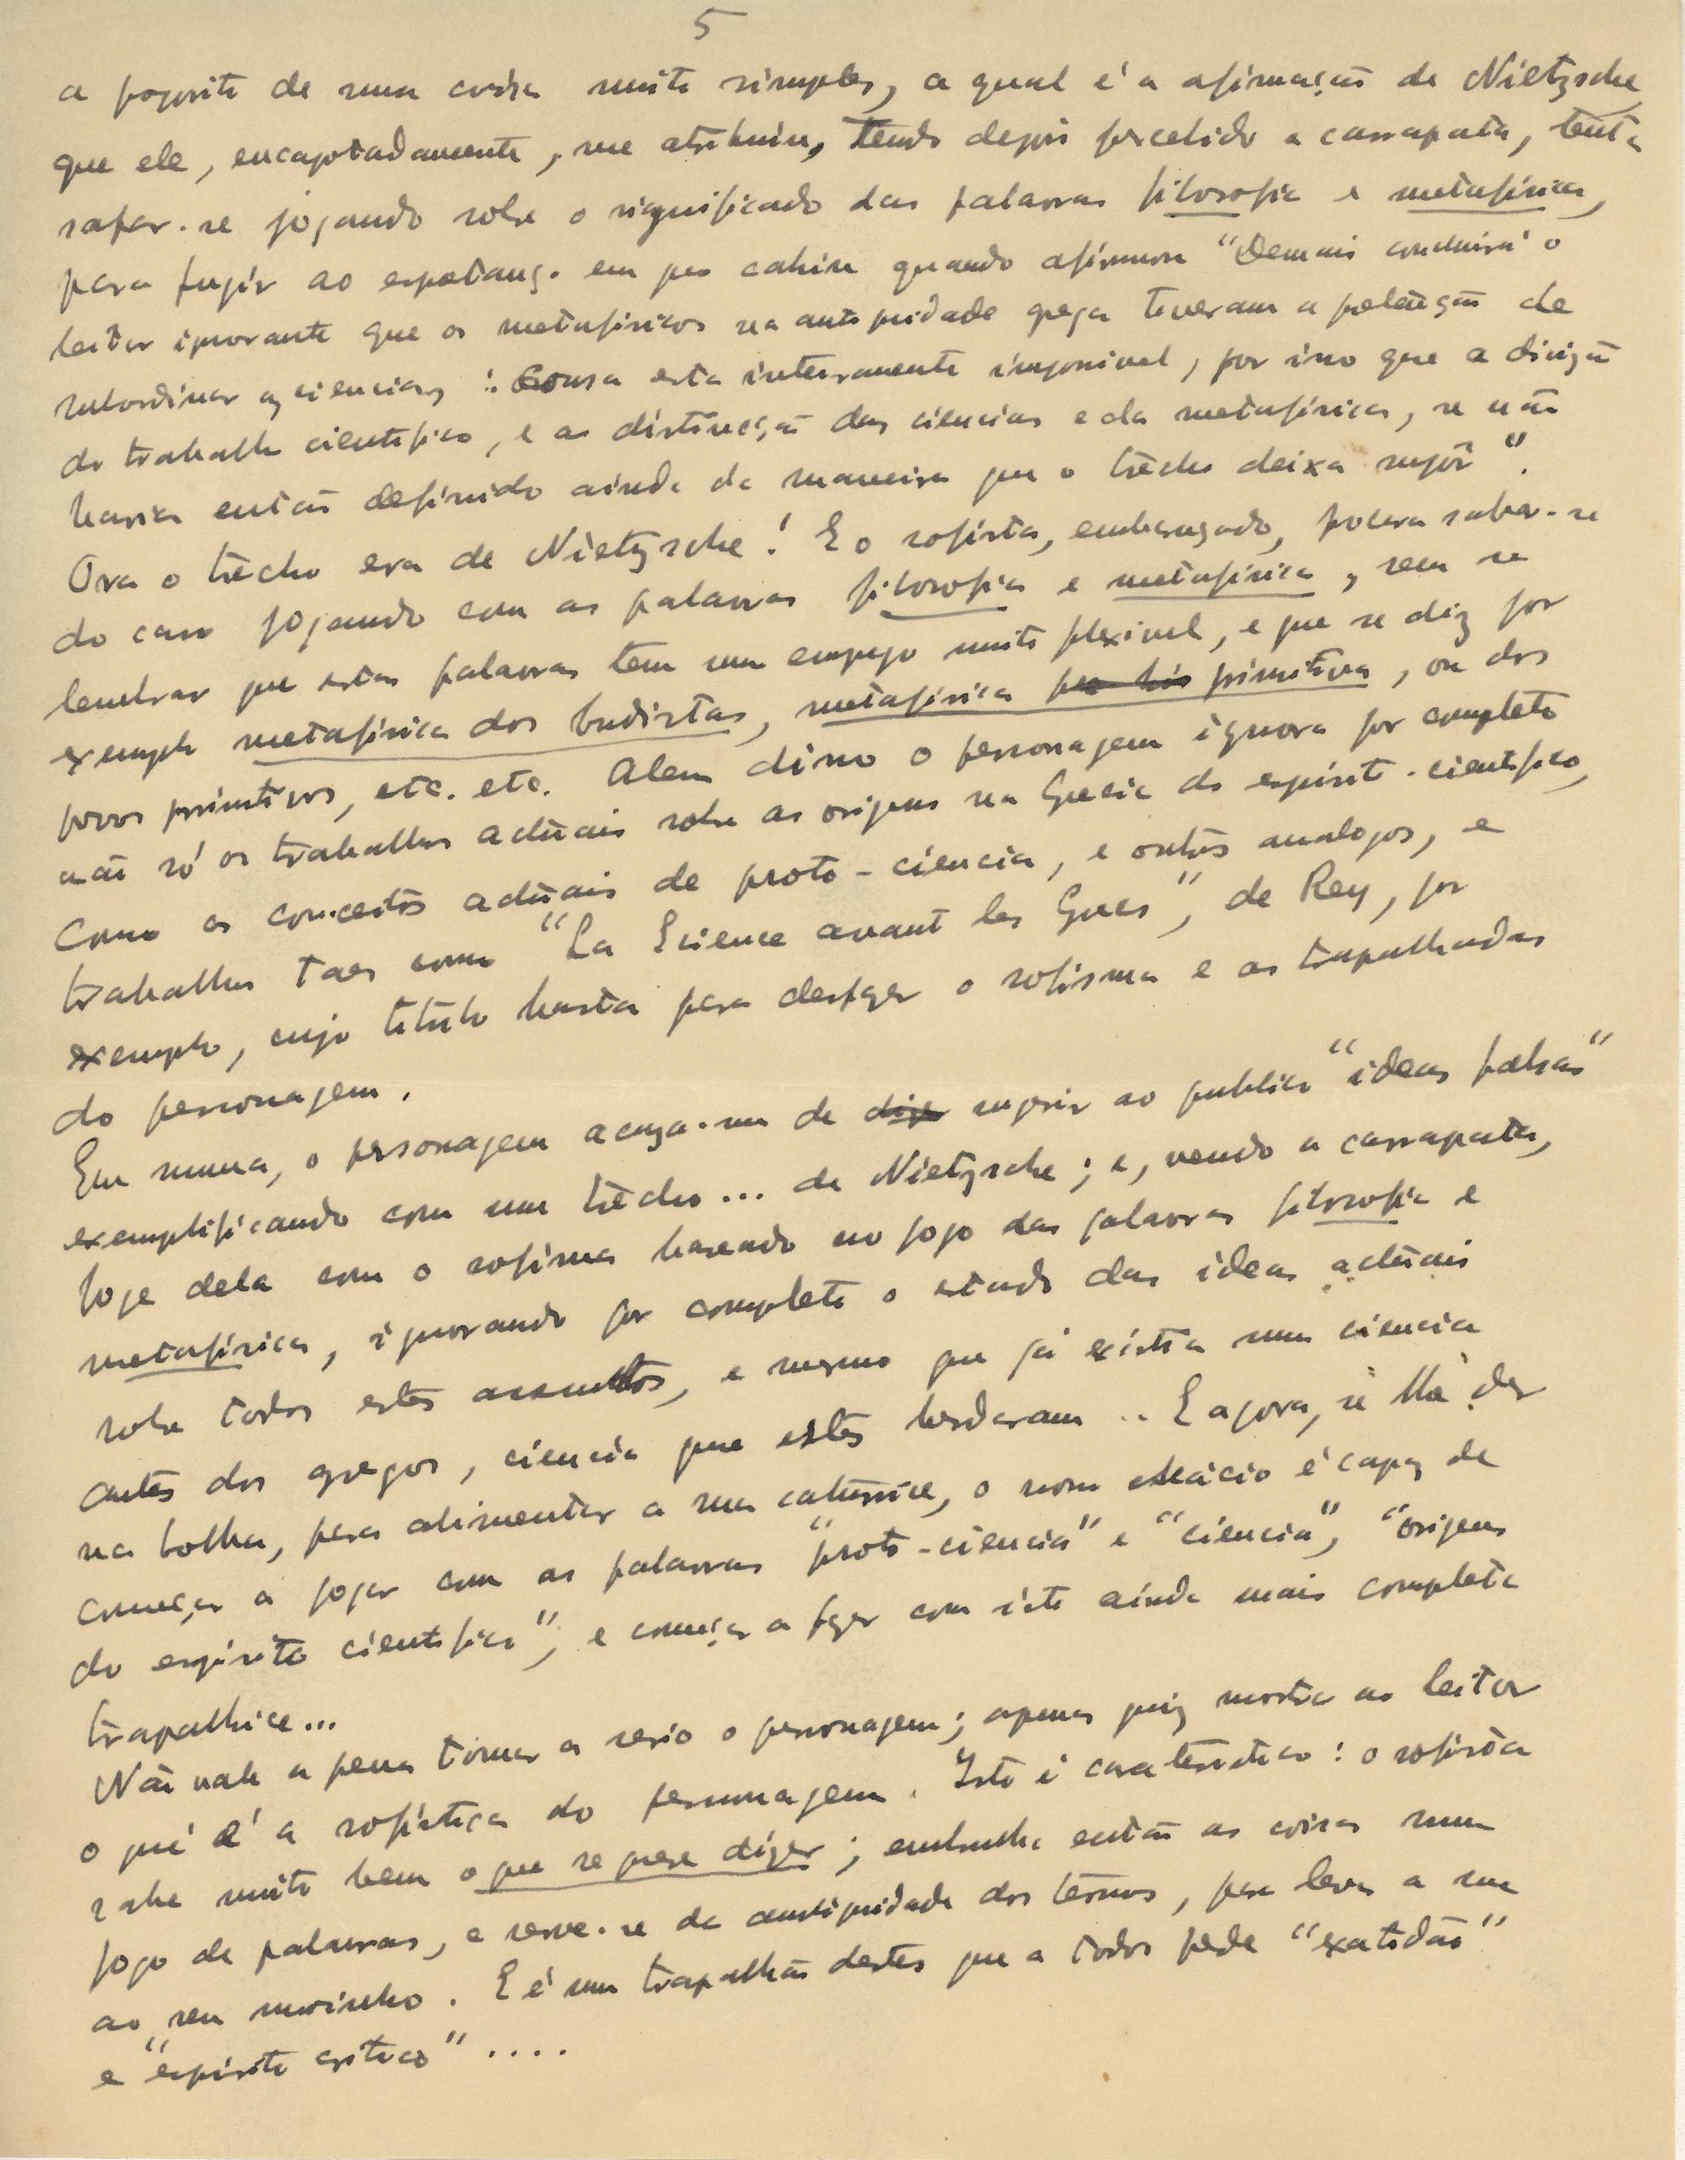 5
a proposito de uma coisa muito simples, a qual é a afirmação de Nietzsche
que ele, encapotadamente, me atribuiu, tendo depois percebido a carrapata, tenta
safar-se jogando sobre o significado das palavras filosofia e metafisica,
para fugir ao espetanço em que cahiu quando afirmou "Demais concluirá o
leitor ignorante que os metafisicos na antiguidade grega tiveram a pretenção de
subordinar as ciencias: Cousa esta inteiramente impossivel, por isso que a divizão
do trabalho cientifico, e as distincção das ciencias e da metafisica, se não
havia então definido ainda da maneira que o trecho deixa supôr".
Ora o trecho era de Nietzsche! E o sofista, embaraçado, procura safar-se
do caso jogando com as palavras filosofia e metafisica, sem se
lembrar que estas palavras tem um emprego muito flexivel, e que se diz por
exemplo metafisica dos budistas, metafisica primitiva, ou dos
povos primitivos, etc. etc. Alem disso o personagem ignora por completo
não só os trabalhos actuais sobre as origens na Grecia do espirito-cientifico,
como os conceitos actuais de proto-ciencia, e outros analogos, e
trabalhos taes como "La Science avant les Grecs", de Rey, por
exemplo, cujo titulo basta para desfazer o sofisma e as trapalhadas
do personagem.
Em suma, o personagem acuza-me de sugerir ao publico "ideas falsas"
exemplificando com um trecho... de Nietzsche; e, vendo a carrapata,
foge dela com o sofisma baseado no jogo das palavras filosofia e
metafisica, ignorando por completo o estado das ideas actuais
sobre todos estes assumtos, e mesmo que já existia uma ciencia
antes dos gregos, ciencia que estes herdaram .. E agora, se lhe der
na bolha, para alimentar a sua caturrice, o nosso Acácio é capaz de
começar a jogar com as palavras "proto-ciencia" e "ciencia", "origens
do espirito cientifico", e começar a fazer com isto ainda mais completa
trapalhice...
Não vale a pena tomar a serio o personagem; apenas quiz mostrar ao leitor
o que é a sofistica do personagem. Isto é caracteristico: o sofista
sabe muito bem o que se quere dizer; embrulha então as coisas num
jogo de palavras, e serve-se da ambiguidade dos termos, para levar a sua
ao seu moinho. E é um trapalhão destes que a todos pede "exatidão"
e "espirito critico"....